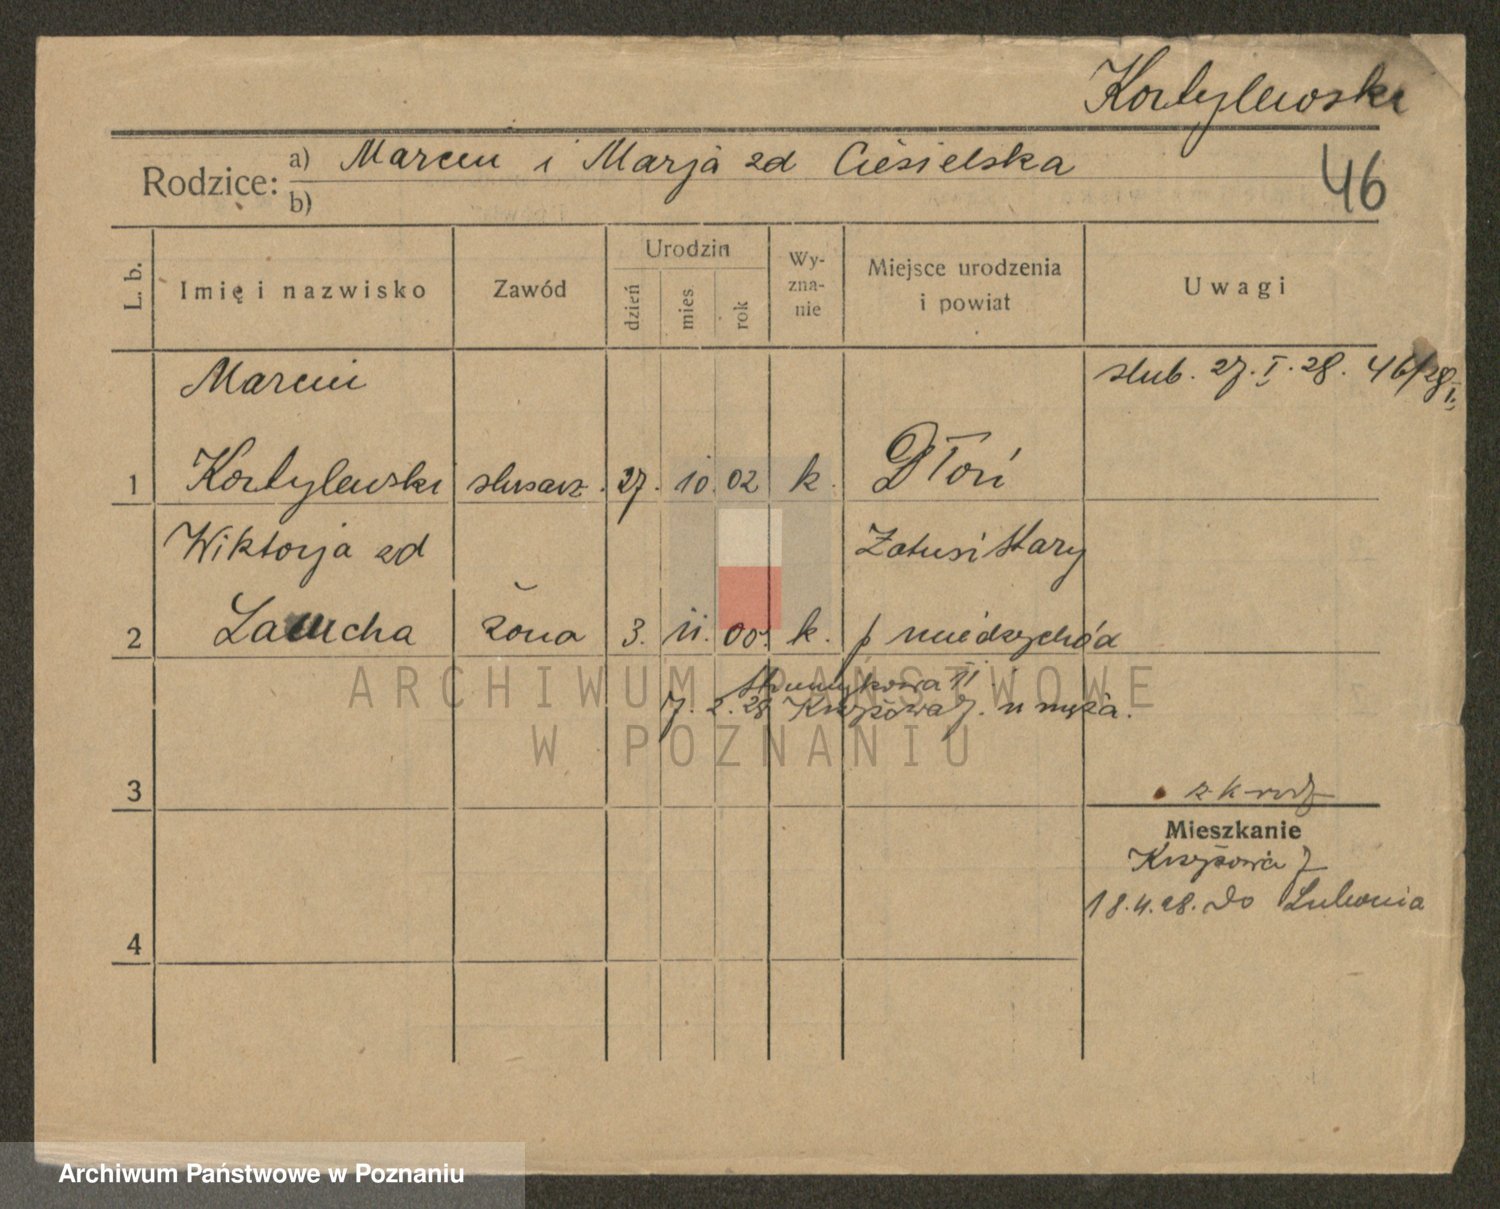 Kortylewski
Rodzice: a) Marcin i Marja zd Ciesielska
46
b)
L. b.
Imię i nazwisko
Zawód
Urodzin
dzień
mies.
rok
Wy-
zna-
nie
Miejsce urodzenia
i powiat
Uwagi
Marcin
ślub. 27. I. 28. 46/28
1 Kortylewski ślusarz. 27. 10. 02 k. Dłoń
Wiktorja zd
Zatusi Stary
2 żona 3. 11. 00. k. p międzychód
7. 2. 28 Krzyżowa 7. u męża.
3
Mieszkanie
Krzyżowa 7
18.4.28. do Lubonia
4
ARCHIWUM PAŃSTWOWE
W POZNANIU
Archiwum Państwowe w Poznaniu